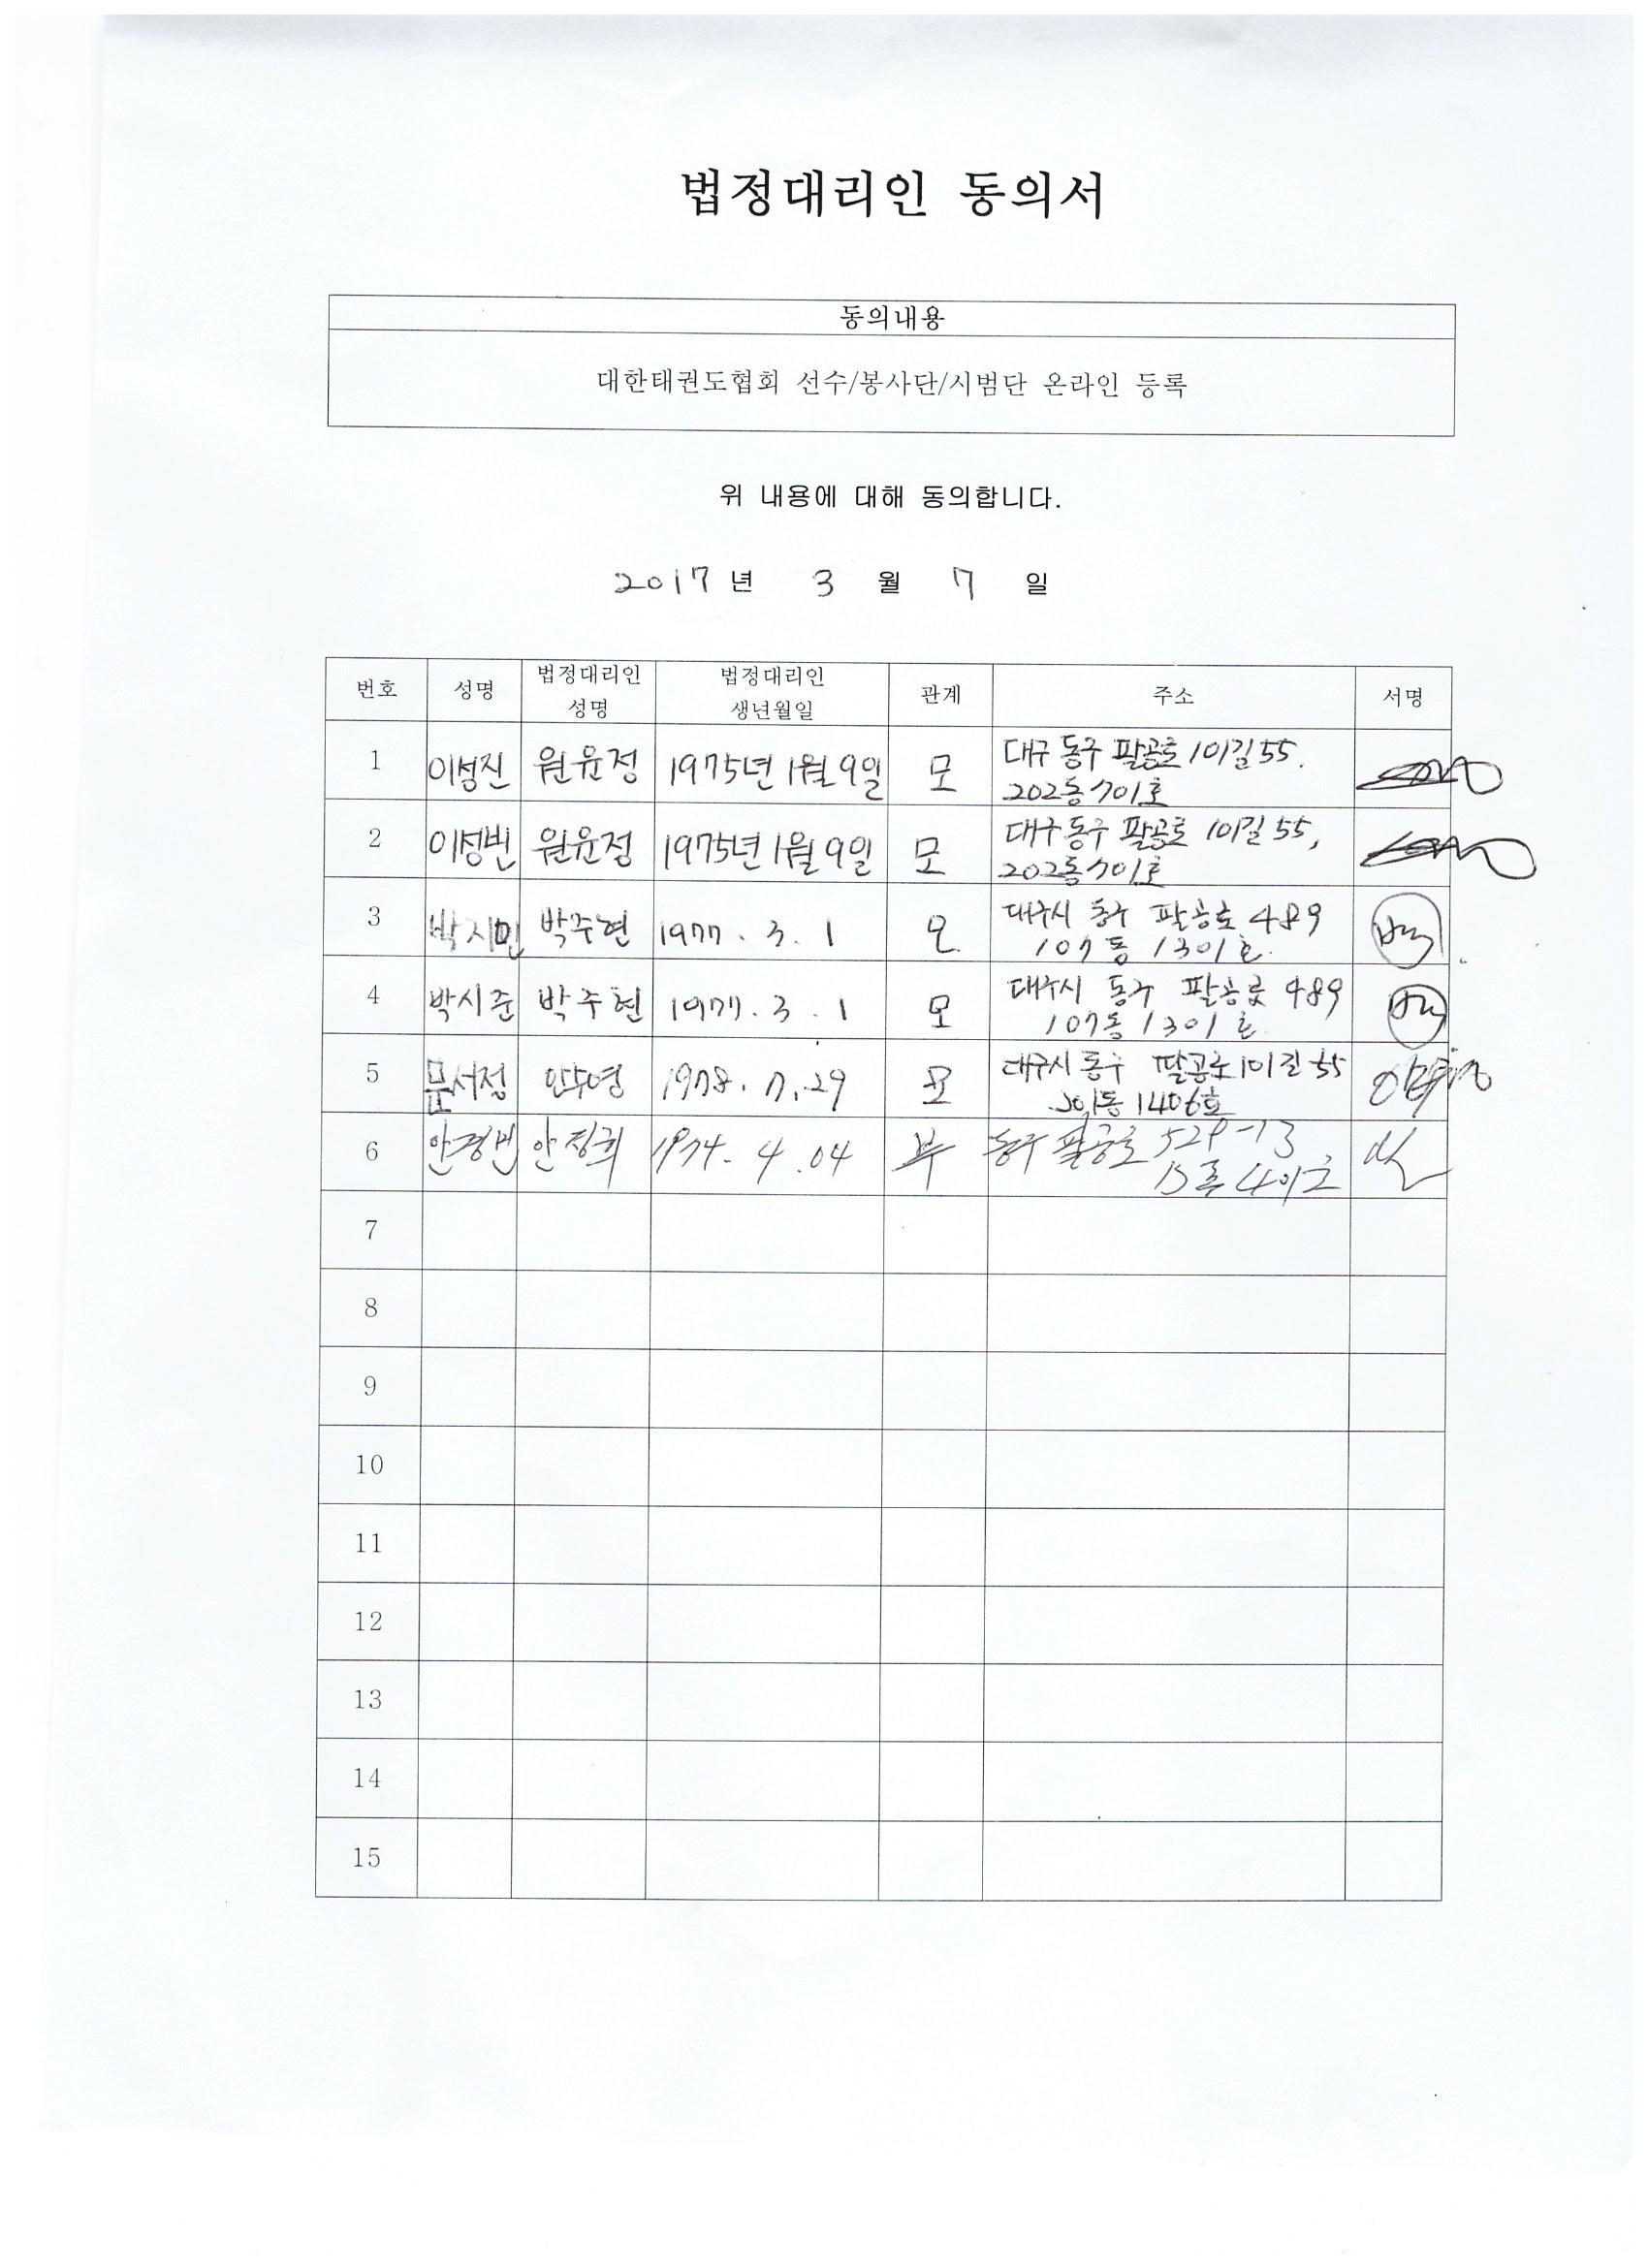 법정대리인 동의서
동의내용
대한태권도협회 선수/봉사단/시범단 온라인 등록
위 내용에 대해 동의합니다.
2017 년 3 월 7 일
번호 성명 법정대리인 성명 법정대리인 생년월일 관계 주소 서명
1 이성진 원윤정 1975년 1월 9일 모 대구 동구 팔공로 101길 55.
202동 701호
2 이성빈 원윤정 1975년 1월 9일 모 대구 동구 팔공로 101길 55,
202동 701호
3 박시민 박주현 1977. 3. 1 모 대구시 동구 팔공로 489
107동 1301호.
4 박시준 박주현 1977. 3. 1 모 대구시 동구 팔공로 489
107동 1301호
5 문서정 1978. 7. 29 모 대구시 동구 팔공로 101길 55
201동 1406호
6 안경빈 1974. 4. 04 부 동구 팔공로 529-13
7
8
9
10
11
12
13
14
15